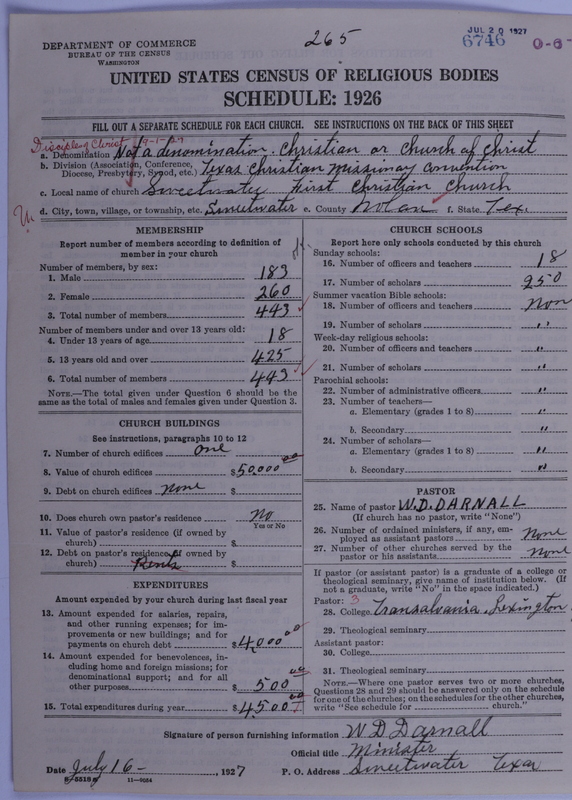 265
JUL 20 1927
6746
0-6
DEPARTMENT OF COMMERCE
BUREAU OF THE CENSUS
WASHINGTON
UNITED STATES CENSUS OF RELIGIOUS BODIES
SCHEDULE: 1926
FILL OUT A SEPARATE SCHEDULE FOR EACH CHURCH. SEE INSTRUCTIONS ON THE BACK OF THIS SHEET
Disciples of Christ 9-1-27
a. Denomination Not a denomination. Christian or Church of Christ
b. Division (Association, Conference, Diocese, Presbytery, Synod, etc.) Texas Christian Missionary Convention
c. Local name of church Sweetwater First Christian Church
d. City, town, village, or township, etc. Sweetwater e. County Nolan f. State Tex.
MEMBERSHIP
Report number of members according to definition of
member in your church
Number of members, by sex:
1. Male 183
2. Female 260
3. Total number of members 443
Number of members under and over 13 years old:
4. Under 13 years of age 18
5. 13 years old and over 425
6. Total number of members 443
NOTE.—The total given under Question 6 should be the
same as the total of males and females given under Question 3.
CHURCH BUILDINGS
See instructions, paragraphs 10 to 12
7. Number of church edifices one
8. Value of church edifices $50,000 00
9. Debt on church edifices none $
10. Does church own pastor's residence No
Yes or No
11. Value of pastor's residence (if owned by
church) $
12. Debt on pastor's residence (if owned by
church) Rents $
EXPENDITURES
Amount expended by your church during last fiscal year
13. Amount expended for salaries, repairs,
and other running expenses; for im-
provements or new buildings; and for
payments on church debt $4000 00
14. Amount expended for benevolences, in-
cluding home and foreign missions; for
denominational support; and for all
other purposes $500 00
15. Total expenditures during year $4500 00
CHURCH SCHOOLS
Report here only schools conducted by this church
Sunday schools:
16. Number of officers and teachers 18
17. Number of scholars 250
Summer vacation Bible schools:
18. Number of officers and teachers Non
19. Number of scholars "
Week-day religious schools:
20. Number of officers and teachers "
21. Number of scholars "
Parochial schools:
22. Number of administrative officers "
23. Number of teachers—
a. Elementary (grades 1 to 8) "
b. Secondary "
24. Number of scholars—
a. Elementary (grades 1 to 8) "
b. Secondary "
PASTOR
25. Name of pastor W. D. DARNALL
(If church has no pastor, write "None")
26. Number of ordained ministers, if any, em-
ployed as assistant pastors None
27. Number of other churches served by the
pastor or his assistants None
If pastor (or assistant pastor) is a graduate of a college or
theological seminary, give name of institution below. (If
not a graduate, write "No" in the space indicated.)
Pastor: 3
28. College Transalvania, Lexington
29. Theological seminary
Assistant pastor:
30. College
31. Theological seminary
NOTE.—Where one pastor serves two or more churches,
Questions 28 and 29 should be answered only on the schedule
for one of the churches; on the schedules for the other churches,
write "See schedule for church."
Signature of person furnishing information W D Darnall
Official title Minister
Date July 16 - , 1927 P. O. Address Sweetwater Texas
11—9054